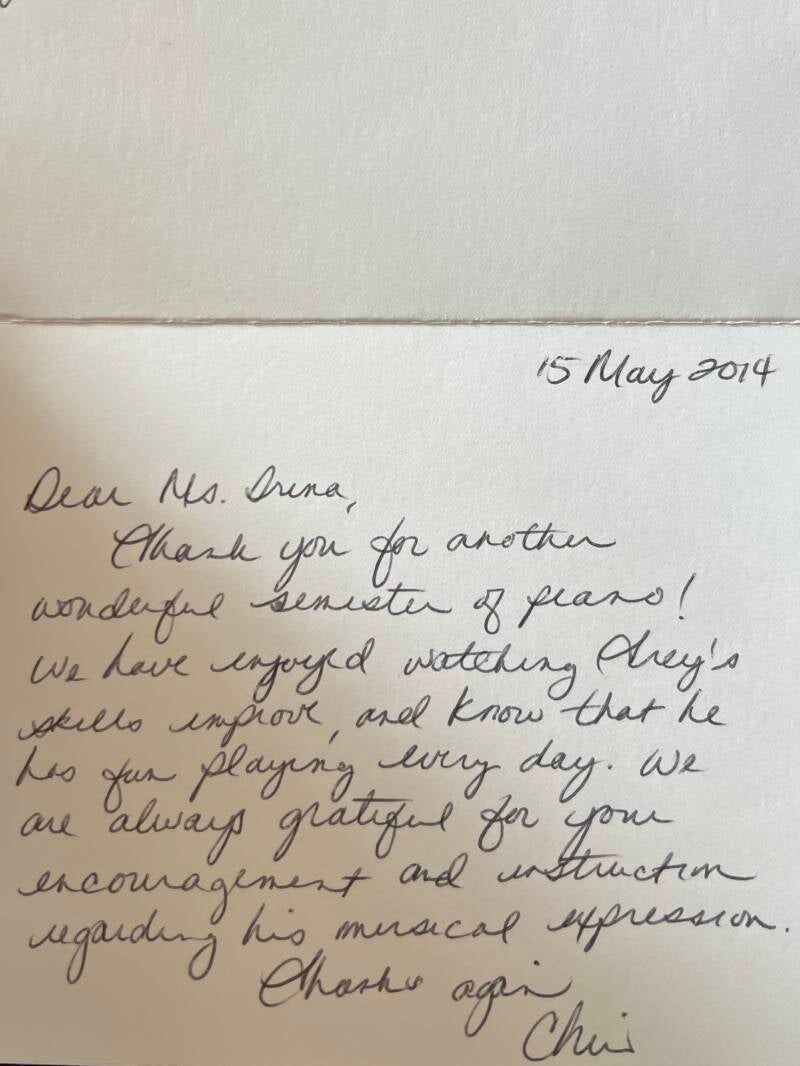 15 May 2014
Dear Ms. Irina,
Thank you for another
wonderful semester of piano!
We have enjoyed watching Trey's
skills improve, and know that he
has fun playing every day. We
are always grateful for your
encouragement and instruction
regarding his musical expression.
Thanks again
Chris